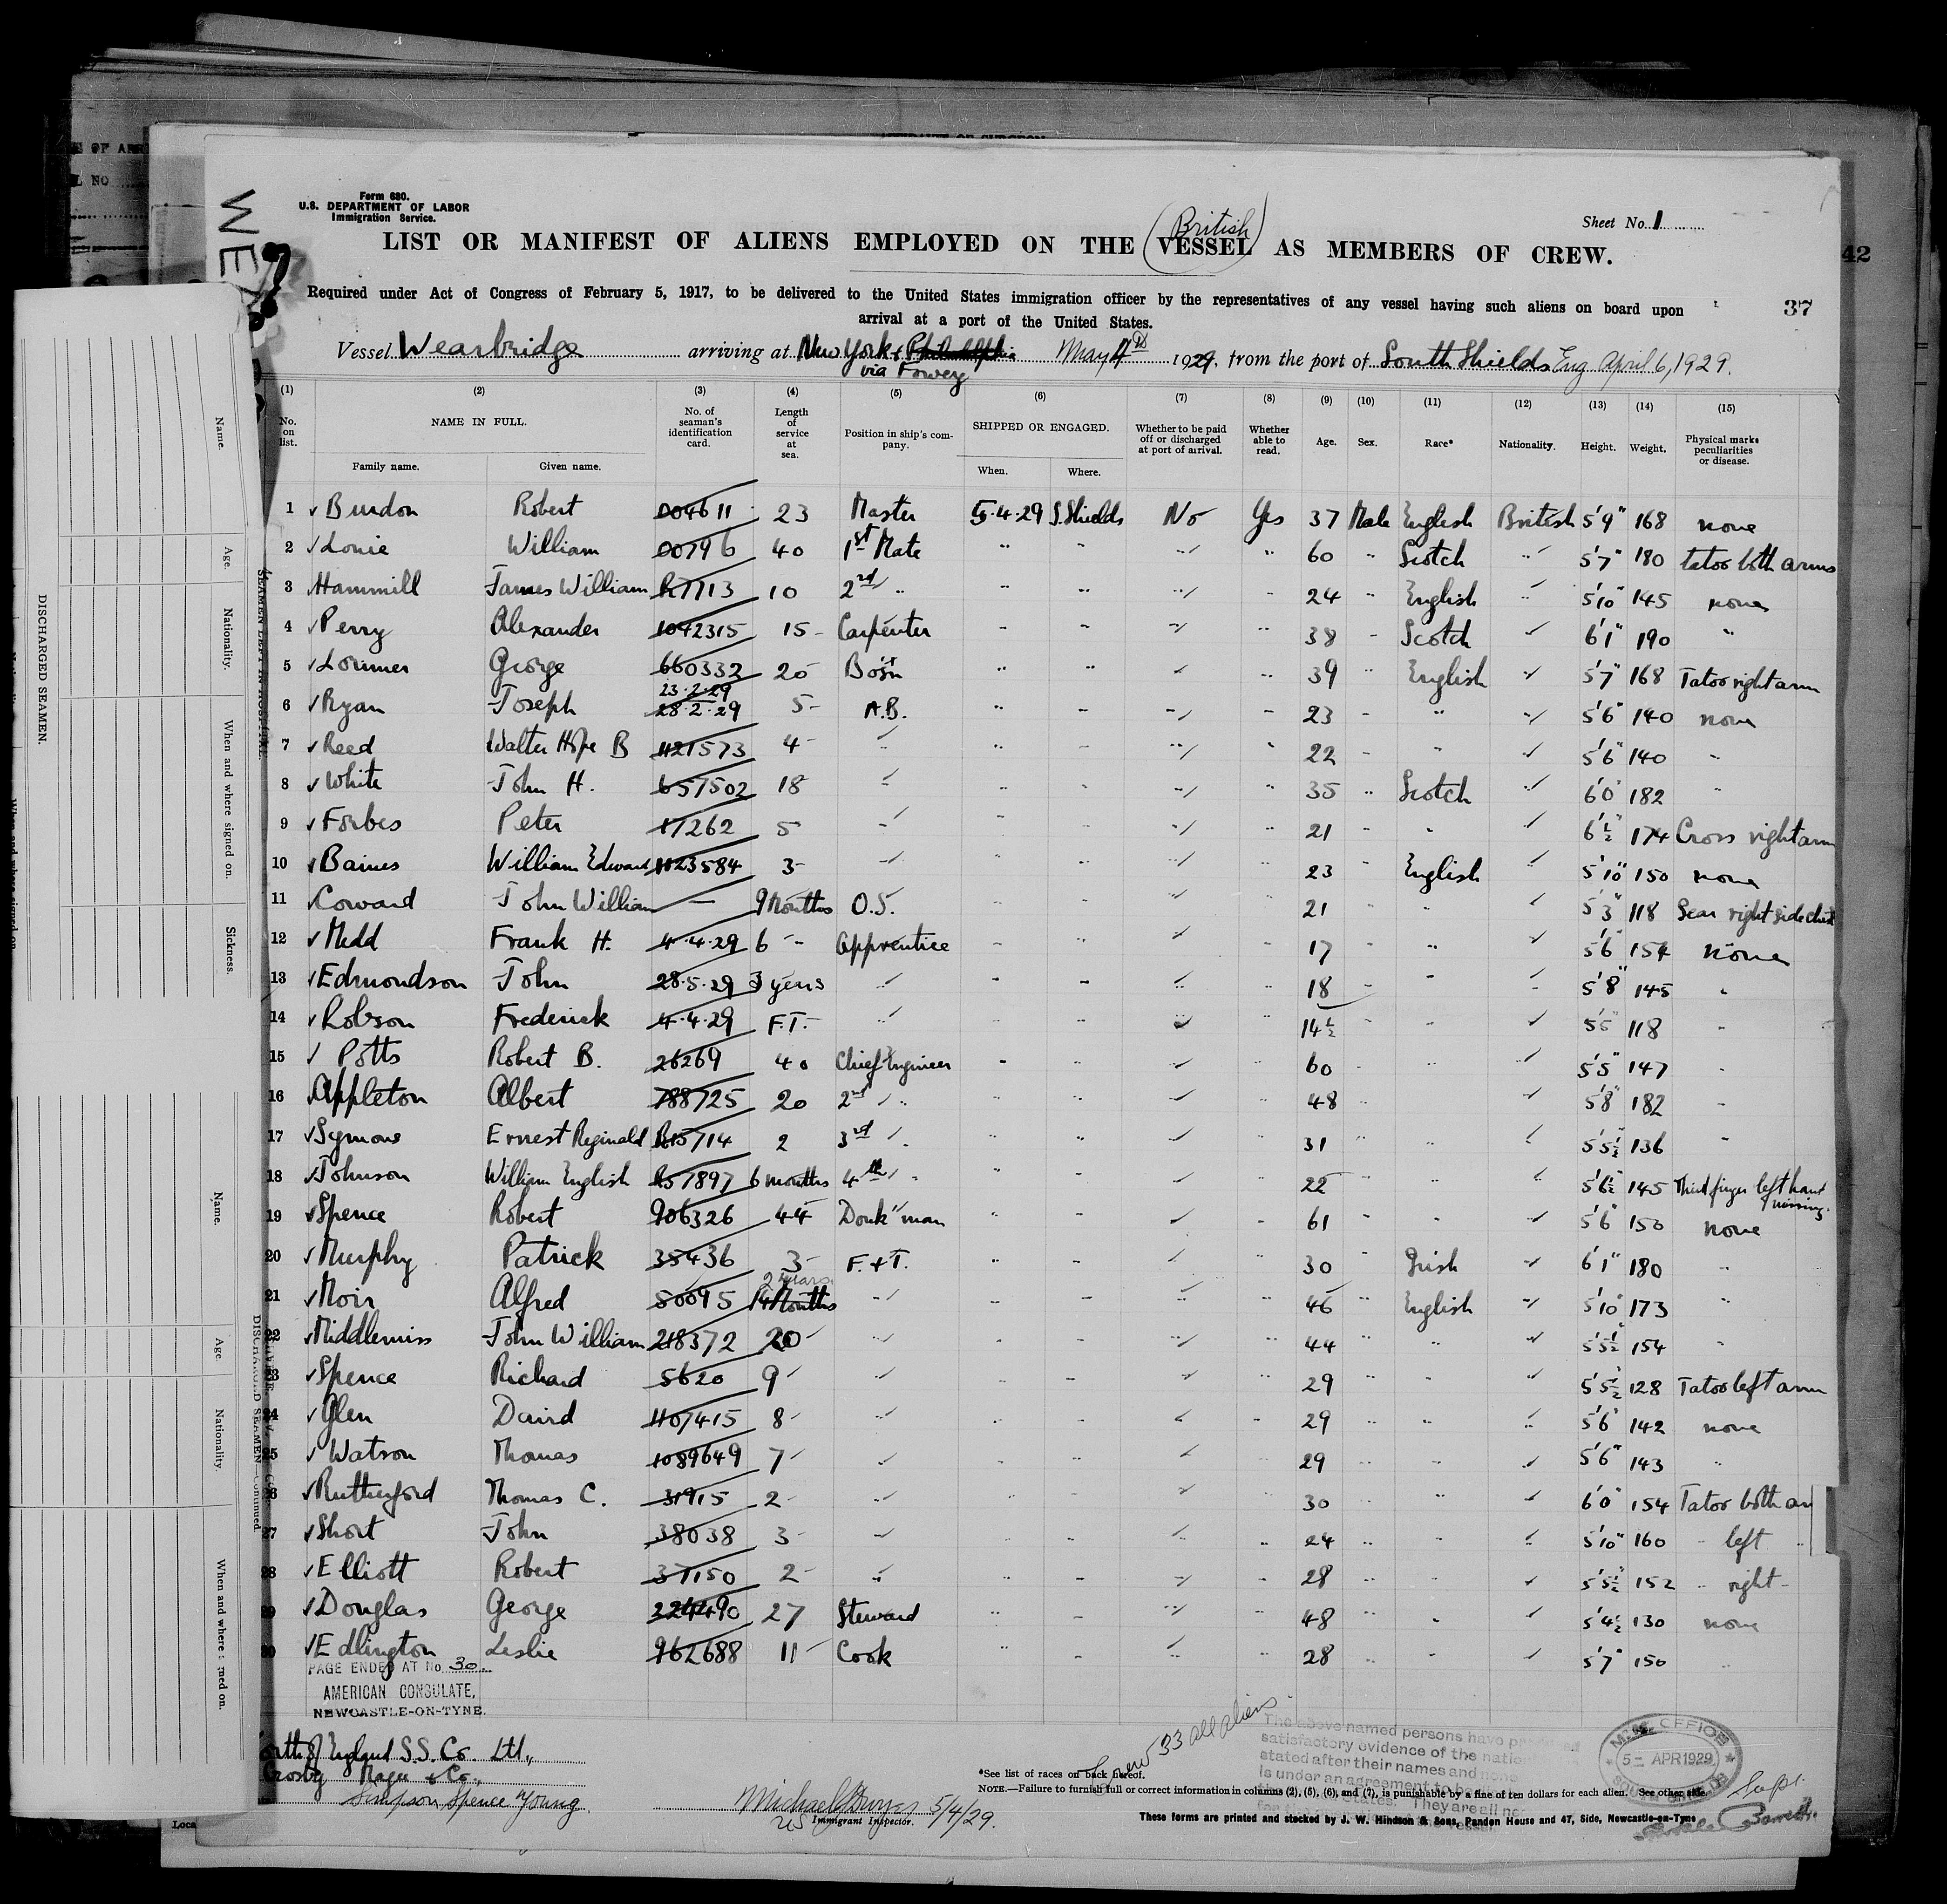 Form 680.
U.S. DEPARTMENT OF LABOR
Immigration Service.
Sheet No. 1
British
LIST OR MANIFEST OF ALIENS EMPLOYED ON THE VESSEL AS MEMBERS OF CREW.
42
37
Required under Act of Congress of February 5, 1917, to be delivered to the United States immigration officer by the representatives of any vessel having such aliens on board upon
arrival at a port of the United States.
Vessel Wearbridge arriving at New York & Philadelphia May 4th 1929, from the port of South Shields Eng April 6, 1929.
via Fowey
(1) (2) (3) (4) (5) (6) (7) (8) (9) (10) (11) (12) (13) (14) (15)
No. on list. NAME IN FULL. Family name. Given name. No. of seaman's identification card. Length of service at sea. Position in ship's company. SHIPPED OR ENGAGED. When. Where. Whether to be paid off or discharged at port of arrival. Whether able to read. Age. Sex. Race* Nationality. Height. Weight. Physical marks peculiarities or disease.
1 Burdon Robert 004611 23 Master 5.4.29 S.Shields No Yes 37 Male English British 5'9" 168 none
2 Lonie William 00796 40 1st Mate " " " " 60 " Scotch " 5'7" 180 tatoo both arms
3 Hammill James William R7713 10 2nd " " " " " 24 " English " 5'10" 145 none
4 Perry Alexander 1042315 15 Carpenter " " " " 38 " Scotch " 6'1" 190 "
5 Lorimer George 660332 20 Bosn " " " " 39 " English " 5'7" 168 Tatoo right arm
23.2.29
6 Ryan Joseph 28.2.29 5 A.B. " " " " 23 " " " 5'6" 140 none
7 Reed Walter Hope B 1121573 4 " " " " " 22 " " " 5'6" 140 "
8 White John H. 657502 18 " " " " " 35 " Scotch " 6'0" 182 "
9 Forbes Peter 17262 5 " " " " " 21 " " " 6'½" 174 Cross right arm
10 Baines William Edward 1023584 3 " " " " " 23 " English " 5'10" 150 none
11 Coward John William — 9 Months O.S. " " " " 21 " " " 5'3" 118 Scar right side chest
12 Medd Frank H. 4.4.29 6 " Apprentice " " " " 17 " " " 5'6" 154 none
13 Edmondson John 28.5.29 3 years " " " " " 18 " " " 5'8" 145 "
14 Robson Frederick 4.4.29 F.T. " " " " " 14½ " " " 5'5" 118 "
15 Potts Robert B. 26269 40 Chief Engineer " " " " 60 " " " 5'5" 147 "
16 Appleton Albert 788725 20 2nd " " " " " 48 " " " 5'8" 182 "
17 Symons Ernest Reginald R15714 2 3rd " " " " " 31 " " " 5'5½" 136 "
18 Johnson William English R57897 6 months 4th " " " " " 22 " " " 5'6½" 145 Third finger left hand missing.
19 Spence Robert 906326 44 Donk"man " " " " 61 " " " 5'6" 150 none
20 Murphy Patrick 35436 3 F. & T. " " " " 30 " Irish " 6'1" 180 "
2 years
21 Moir Alfred 50095 14 Months " " " " " 46 " English " 5'10" 173 "
22 Middlemiss John William 218372 20 " " " " " 44 " " " 5'5½" 154 "
23 Spence Richard 5620 9 " " " " " 29 " " " 5'5½" 128 Tatoo left arm
24 Glen David 1107415 8 " " " " " 29 " " " 5'6" 142 none
25 Watson Thomas 1089649 7 " " " " " 29 " " " 5'6" 143 "
26 Rutherford Thomas C. 31915 2 " " " " " 30 " " " 6'0" 154 Tatoo both
27 Short John 38038 3 " " " " " 24 " " " 5'10" 160 " left "
28 Elliott Robert 37150 2 " " " " " 28 " " " 5'5½" 152 " right "
29 Douglas George 324490 27 Steward " " " " 48 " " " 5'4½" 130 none
30 Edlington Leslie 962688 11 Cook " " " " 28 " " " 5'7" 150 "
PAGE ENDED AT No. 30
AMERICAN CONSULATE,
NEWCASTLE-ON-TYNE.
of England S.S. Co. Ltd.,
Crosby Magee & Co.,
Simpson Spence Young.
Michael Dwyer 5/4/29.
US Immigrant Inspector.
Crew 33 all aliens
The above named persons have
satisfactory evidence of the
stated after their names and none
is under an agreement to be
States. They are all
*See list of races on back hereof.
NOTE.—Failure to furnish full or correct information in columns (2), (5), (6), and (7), is punishable by a fine of ten dollars for each alien. See other side.
These forms are printed and stocked by J. W. Hindson & Sons, Pandon House and 47, Side, Newcastle-on-Tyne
OFFICE
5 - APR 1929
DISCHARGED SEAMEN.
Name.
Age.
Nationality.
When and where signed on.
Sickness.
SEAMEN LEFT IN HOSPITAL.
DISCHARGED SEAMEN—Continued.
Name.
Age.
Nationality.
When and where signed on.